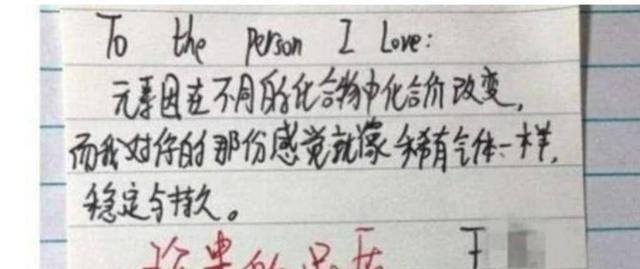 To the person I Love:
元素因在不同的化合物中化合价改变,
而我对你的那份感觉就像稀有气体一样,
稳定与持久。